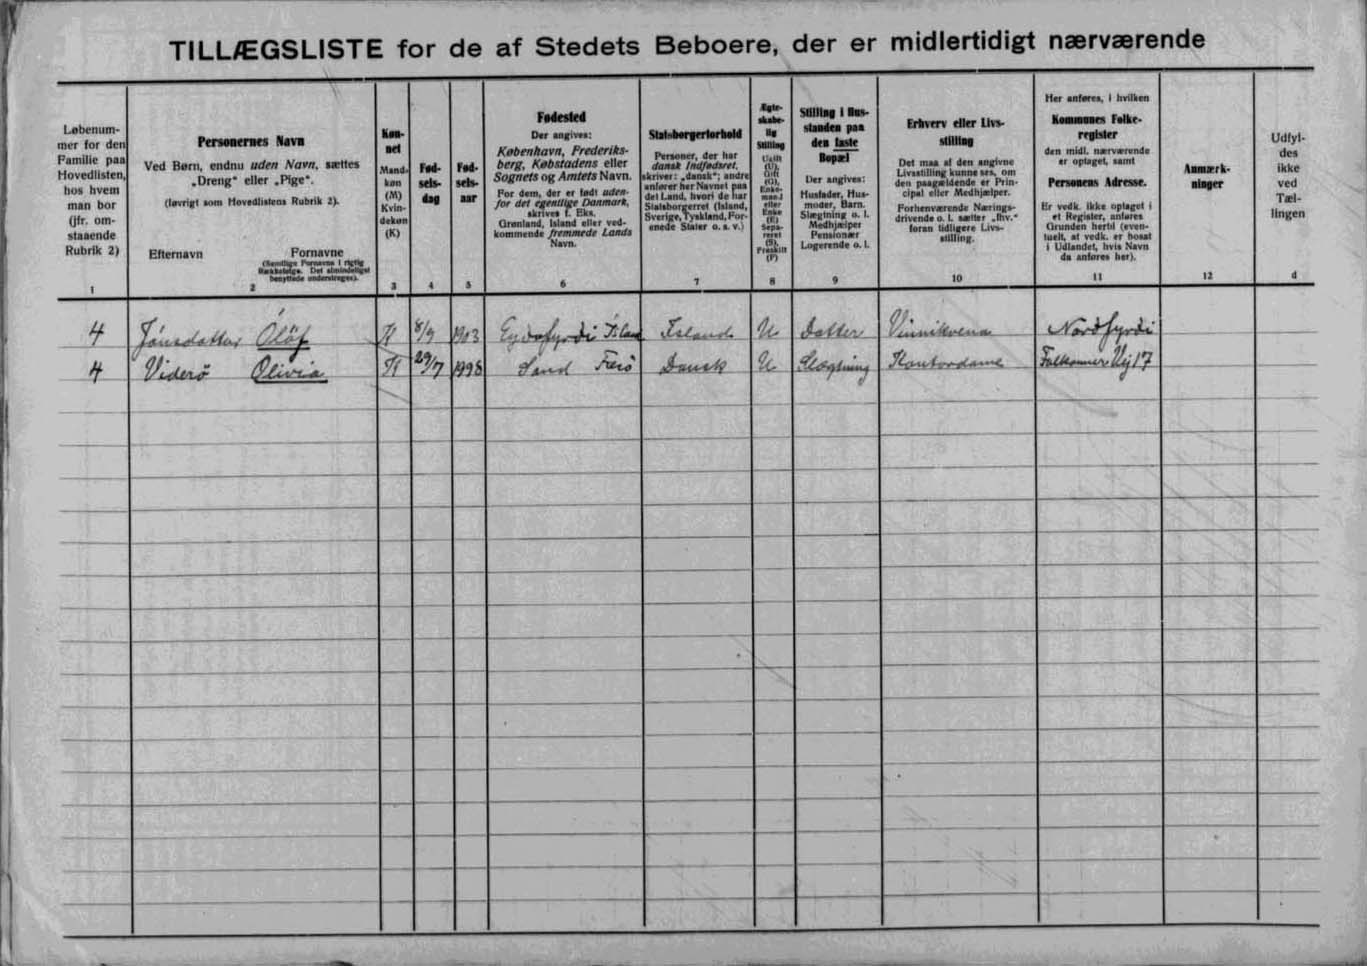 TILLÆGSLISTE for de af Stedets Beboere, der er midlertidigt nærværende
Løbenum-
mer for den
Familie paa
Hovedlisten,
hos hvem
man bor
(jfr. om-
staaende
Rubrik 2)
1
Personernes Navn
Ved Børn, endnu uden Navn, sættes
„Dreng" eller „Pige".
(Iøvrigt som Hovedlistens Rubrik 2).
Efternavn Fornavne
(Samtlige Fornavne i rigtig
Rækkefølge. Det almindeligst
benyttede understreges).
2
Køn-
net
Mand-
køn
(M)
Kvin-
dekøn
(K)
3
Fød-
sels-
dag
4
Fød-
sels-
aar
5
Fødested
Der angives:
København, Frederiks-
berg, Købstadens eller
Sognets og Amtets Navn.
For dem, der er født uden-
for det egentlige Danmark,
skrives f. Eks.
Grønland, Island eller ved-
kommende fremmede Lands
Navn.
6
Statsborgerforhold
Personer, der har
dansk Indfødsret,
skriver: „dansk"; andre
anfører her Navnet paa
det Land, hvori de har
Statsborgerret (Island,
Sverige, Tyskland, For-
enede Stater o. s. v.)
7
Ægte-
skabe-
lig
Stilling
Ugift
(U),
Gift
(G),
Enke-
mand
eller
Enke
(E)
Sepa-
reret
(S),
Fraskilt
(F)
8
Stilling i Hus-
standen paa
den faste
Bopæl
Der angives:
Husfader, Hus-
moder, Barn.
Slægtning o. l.
Medhjælper
Pensionær
Logerende o. l.
9
Erhverv eller Livs-
stilling
Det maa af den angivne
Livsstilling kunne ses, om
den paagældende er Prin-
cipal eller Medhjælper.
Forhenværende Nærings-
drivende o. l. sætter „fhv."
foran tidligere Livs-
stilling.
10
Her anføres, i hvilken
Kommunes Folke-
register
den midl. nærværende
er optaget, samt
Personens Adresse.
Er vedk. ikke optaget i
et Register, anføres
Grunden hertil (even-
tuelt, at vedk. er bosat
i Udlandet, hvis Navn
da anføres her).
11
Anmærk-
ninger
12
Udfyl-
des
ikke
ved
Tæl-
lingen
d
4 Jónsdottur Ólöf K 8/9 1903 Eydafyrdi Ísland Island U Datter Vinnikvena Nordfyrdi
4 Viderö Olivia K 29/7 1998 Sand Færö Dansk U Slægtning Kontordame Falkonner Vej 17